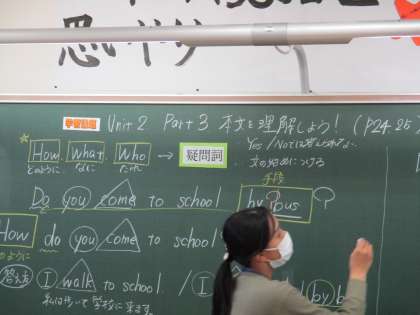 思いやり
学習課題 Unit 2 Part 3 本文を理解しよう! (P24.25
How, What, Who → 疑問詞 Yes / Noでは答えられない
どのように なに だれ 文の始めにつける
手段
Do you come to school by bus ?
How do you come to school
のように
答え方 I walk to school. / I by b
私は歩いて学校に来ます。